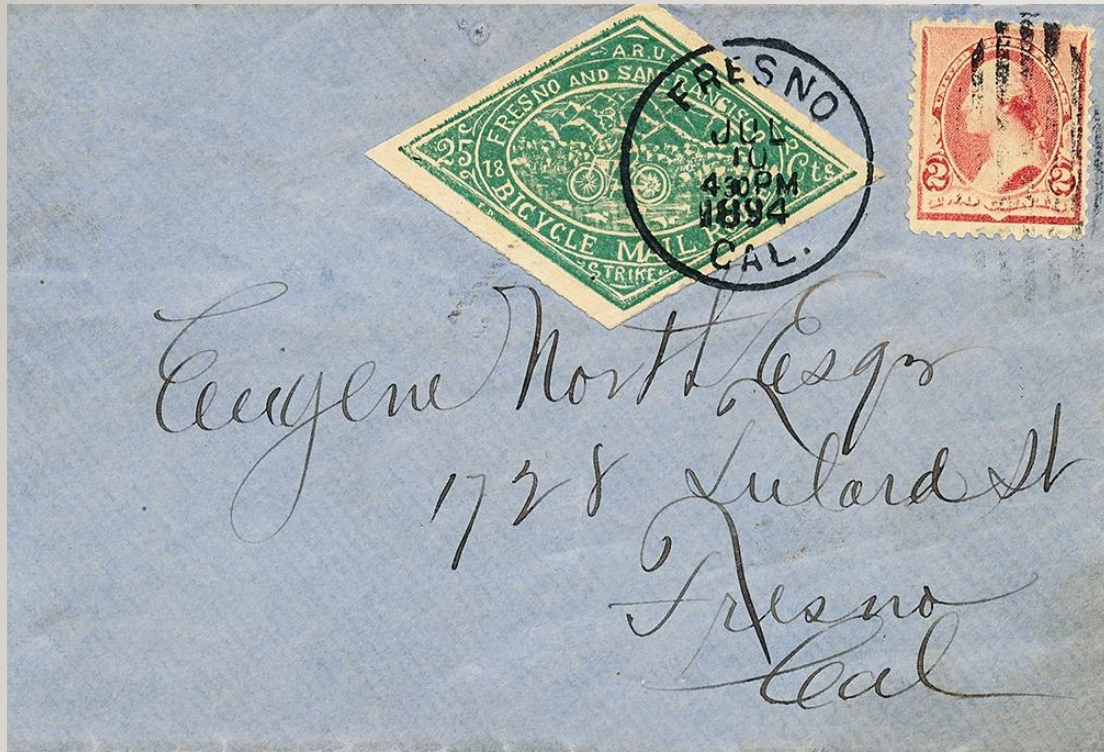 A.R.U.
FRESNO AND SAN FRANCISCO
25 Cts
18
BICYCLE MAIL
STRIKE
FRESNO
JUL
10
4 30 PM
1894
CAL.
2 2
Eugene North Esqr
1728 Tulard St
Fresno
Cal